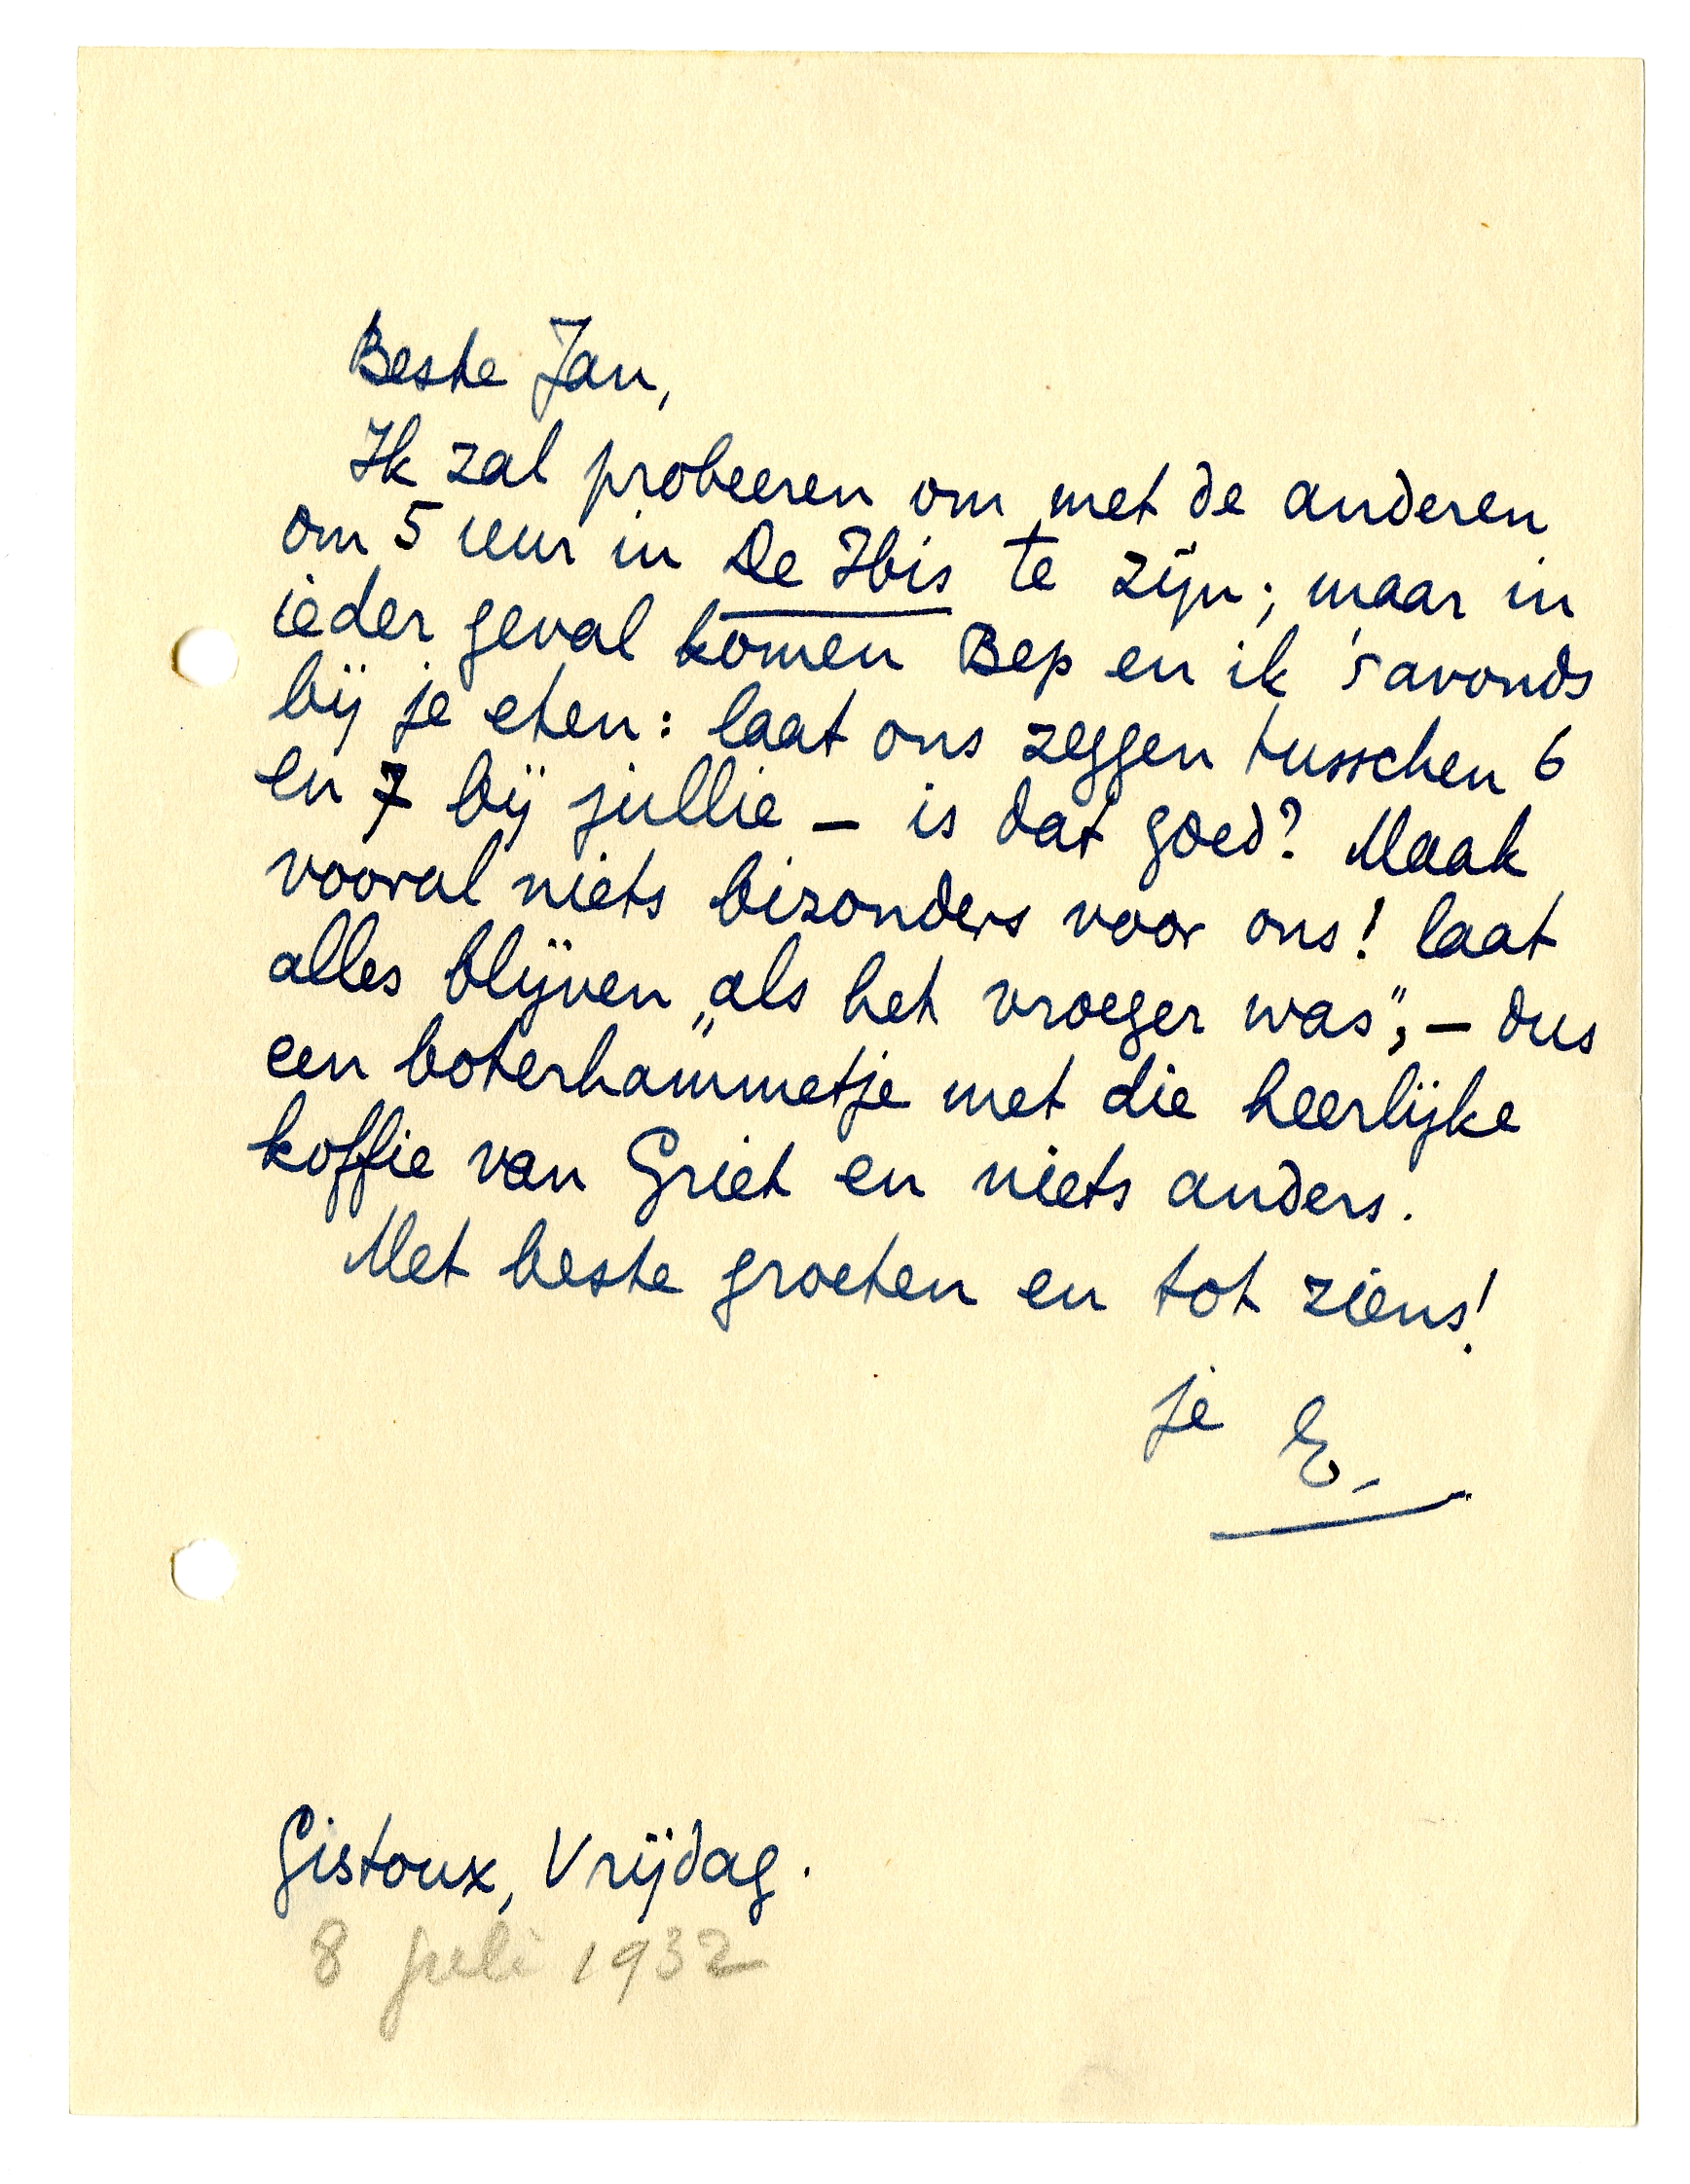 Beste Jan,
Ik zal probeeren om met de anderen
om 5 uur in De Ibis te zijn; maar in
ieder geval komen Bep en ik 's avonds
bij je eten: laat ons zeggen tusschen 6
en 7 bij jullie – is dat goed? Maak
vooral niets bizonders voor ons! laat
alles blijven „als het vroeger was”, – dus
een boterhammetje met die heerlijke
koffie van Griet en niets anders.
Met beste groeten en tot ziens!
je E.
Gistoux, Vrijdag.
8 juli 1932